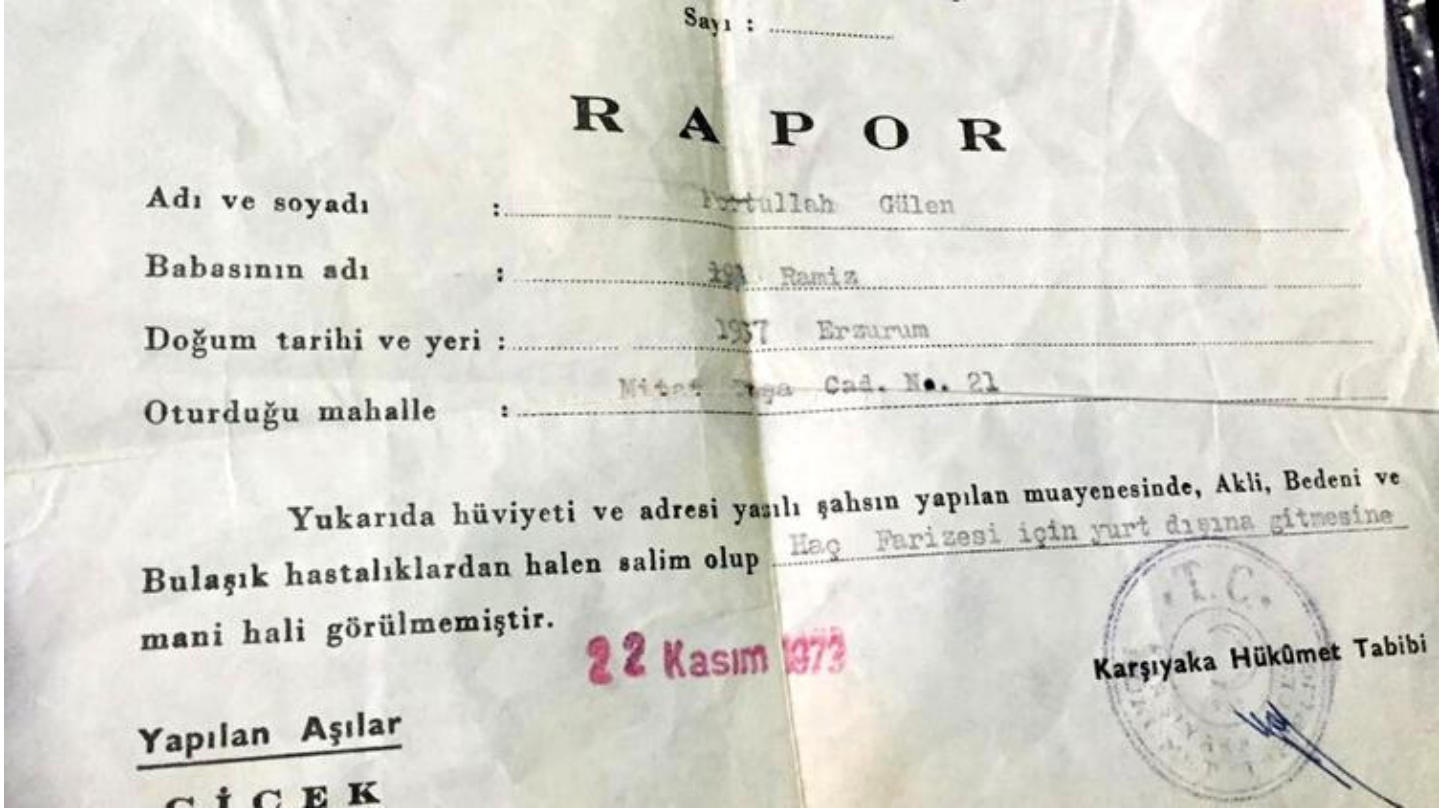 Sayı :
RAPOR
Adı ve soyadı : Fethullah Gülen
Babasının adı : Ramiz
Doğum tarihi ve yeri : 1937 Erzurum
Oturduğu mahalle : Mitat Paşa Cad. No. 21
Yukarıda hüviyeti ve adresi yazılı şahsın yapılan muayenesinde, Akli, Bedeni ve
Bulaşık hastalıklardan halen salim olup Haç Farizesi için yurt dışına gitmesine
mani hali görülmemiştir.
22 Kasım 1973
T.C.
Karşıyaka Hükûmet Tabibi
Yapılan Aşılar
ÇİÇEK